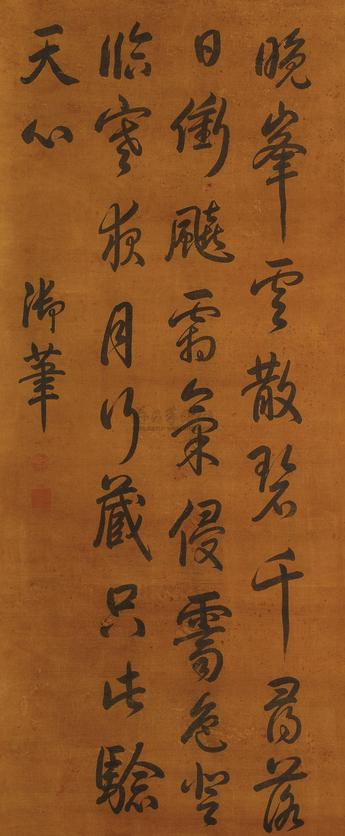 晚峯雲散碧千尋落
日衝飈霜氣侵霽色登
臨寒夜月行藏只此驗
天心
御筆